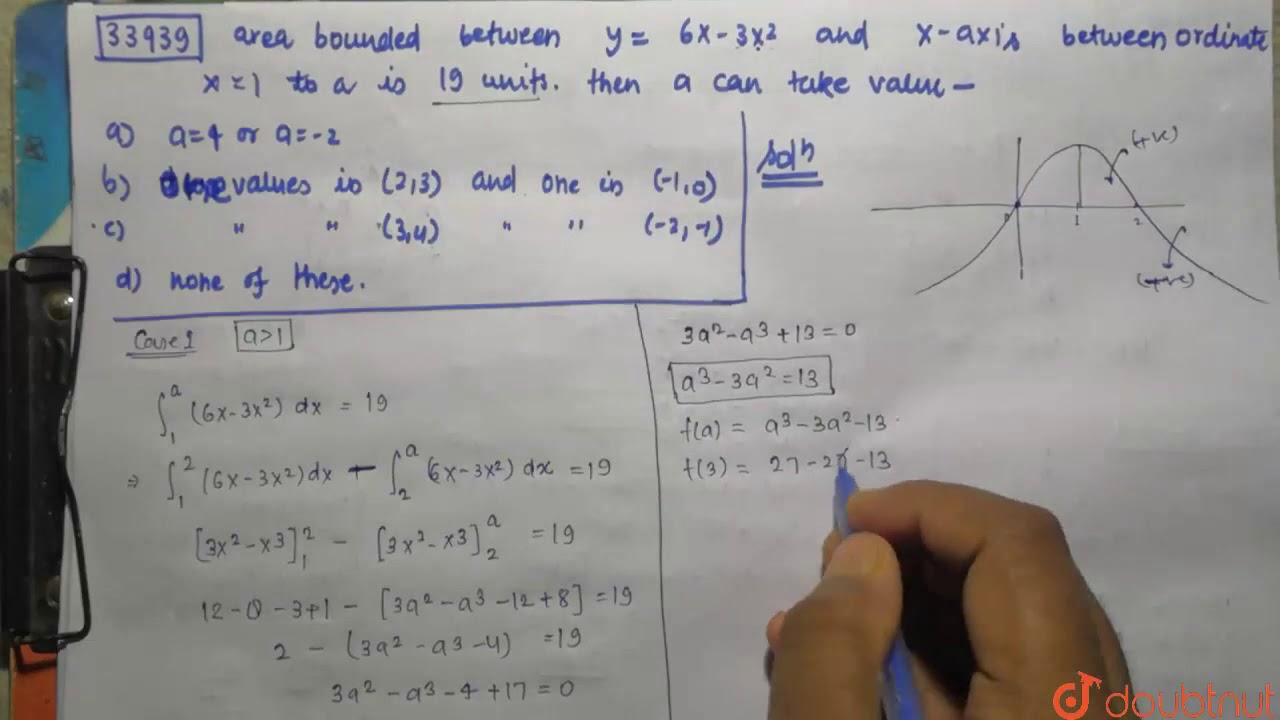 33939 area bounded between y = 6x - 3x² and x-axis between ordinate
x = 1 to a is 19 units. then a can take value -
a) a = 4 or a = -2
b) values is (2,3) and one is (-1,0)
c) " " (3,4) " " (-2,-1)
d) none of these.
Soln
(+ve)
0 1 2
(+ve)
Case 1 a>1
∫₁ᵃ (6x-3x²) dx = 19
⇒ ∫₁² (6x-3x²) dx - ∫₂ᵃ (6x-3x²) dx = 19
[3x²-x³]₁² - [3x²-x³]₂ᵃ = 19
12-8-3+1 - [3a²-a³-12+8] = 19
2 - (3a²-a³-4) = 19
3a²-a³-4+17 = 0
3a²-a³+13 = 0
a³-3a² = 13
f(a) = a³-3a²-13
f(3) = 27-27-13
doubtnut